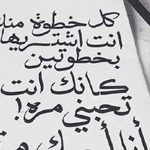 كل خطوة منك
انت اشتريها
بخطوتين
كانك انت
تحبني مره!
أنا أحبك